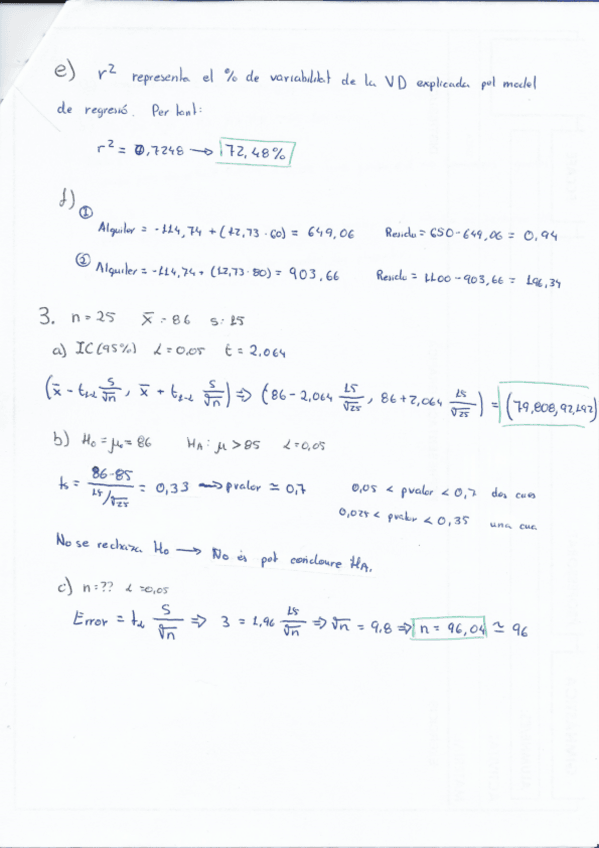 e) r² representa el % de variabilitat de la VD explicada pel model
de regresió. Per tant:
r² = 0,7248 → 72,48%
f)
① Alquiler = -114,74 + (12,73 · 60) = 649,06 Residu = 650-649,06 = 0,94
② Alquiler = -114,74 + (12,73 · 80) = 903,66 Residu = 1100-903,66 = 196,34
3. n=25 x̄ = 86 s: 15
a) IC(95%) α=0,05 t = 2,064
(x̄ - t₁₋α s/√n, x̄ + t₁₋α s/√n) ⇒ (86-2,064 15/√25, 86+2,064 15/√25) = (79,808, 92,192)
b) H₀ = μ₀ = 86 Hₐ: μ > 85 α=0,05
ts = 86-85 / 15/√25 = 0,33 → pvalor ≃ 0,7 0,05 < pvalor < 0,7 dos cues
0,025 < pvalor < 0,35 una cua
No se rechaza H₀ → No és pot concloure Hₐ.
c) n=?? α=0,05
Error = tα s/√n ⇒ 3 = 1,96 15/√n ⇒ √n = 9,8 ⇒ n = 96,04 ≃ 96